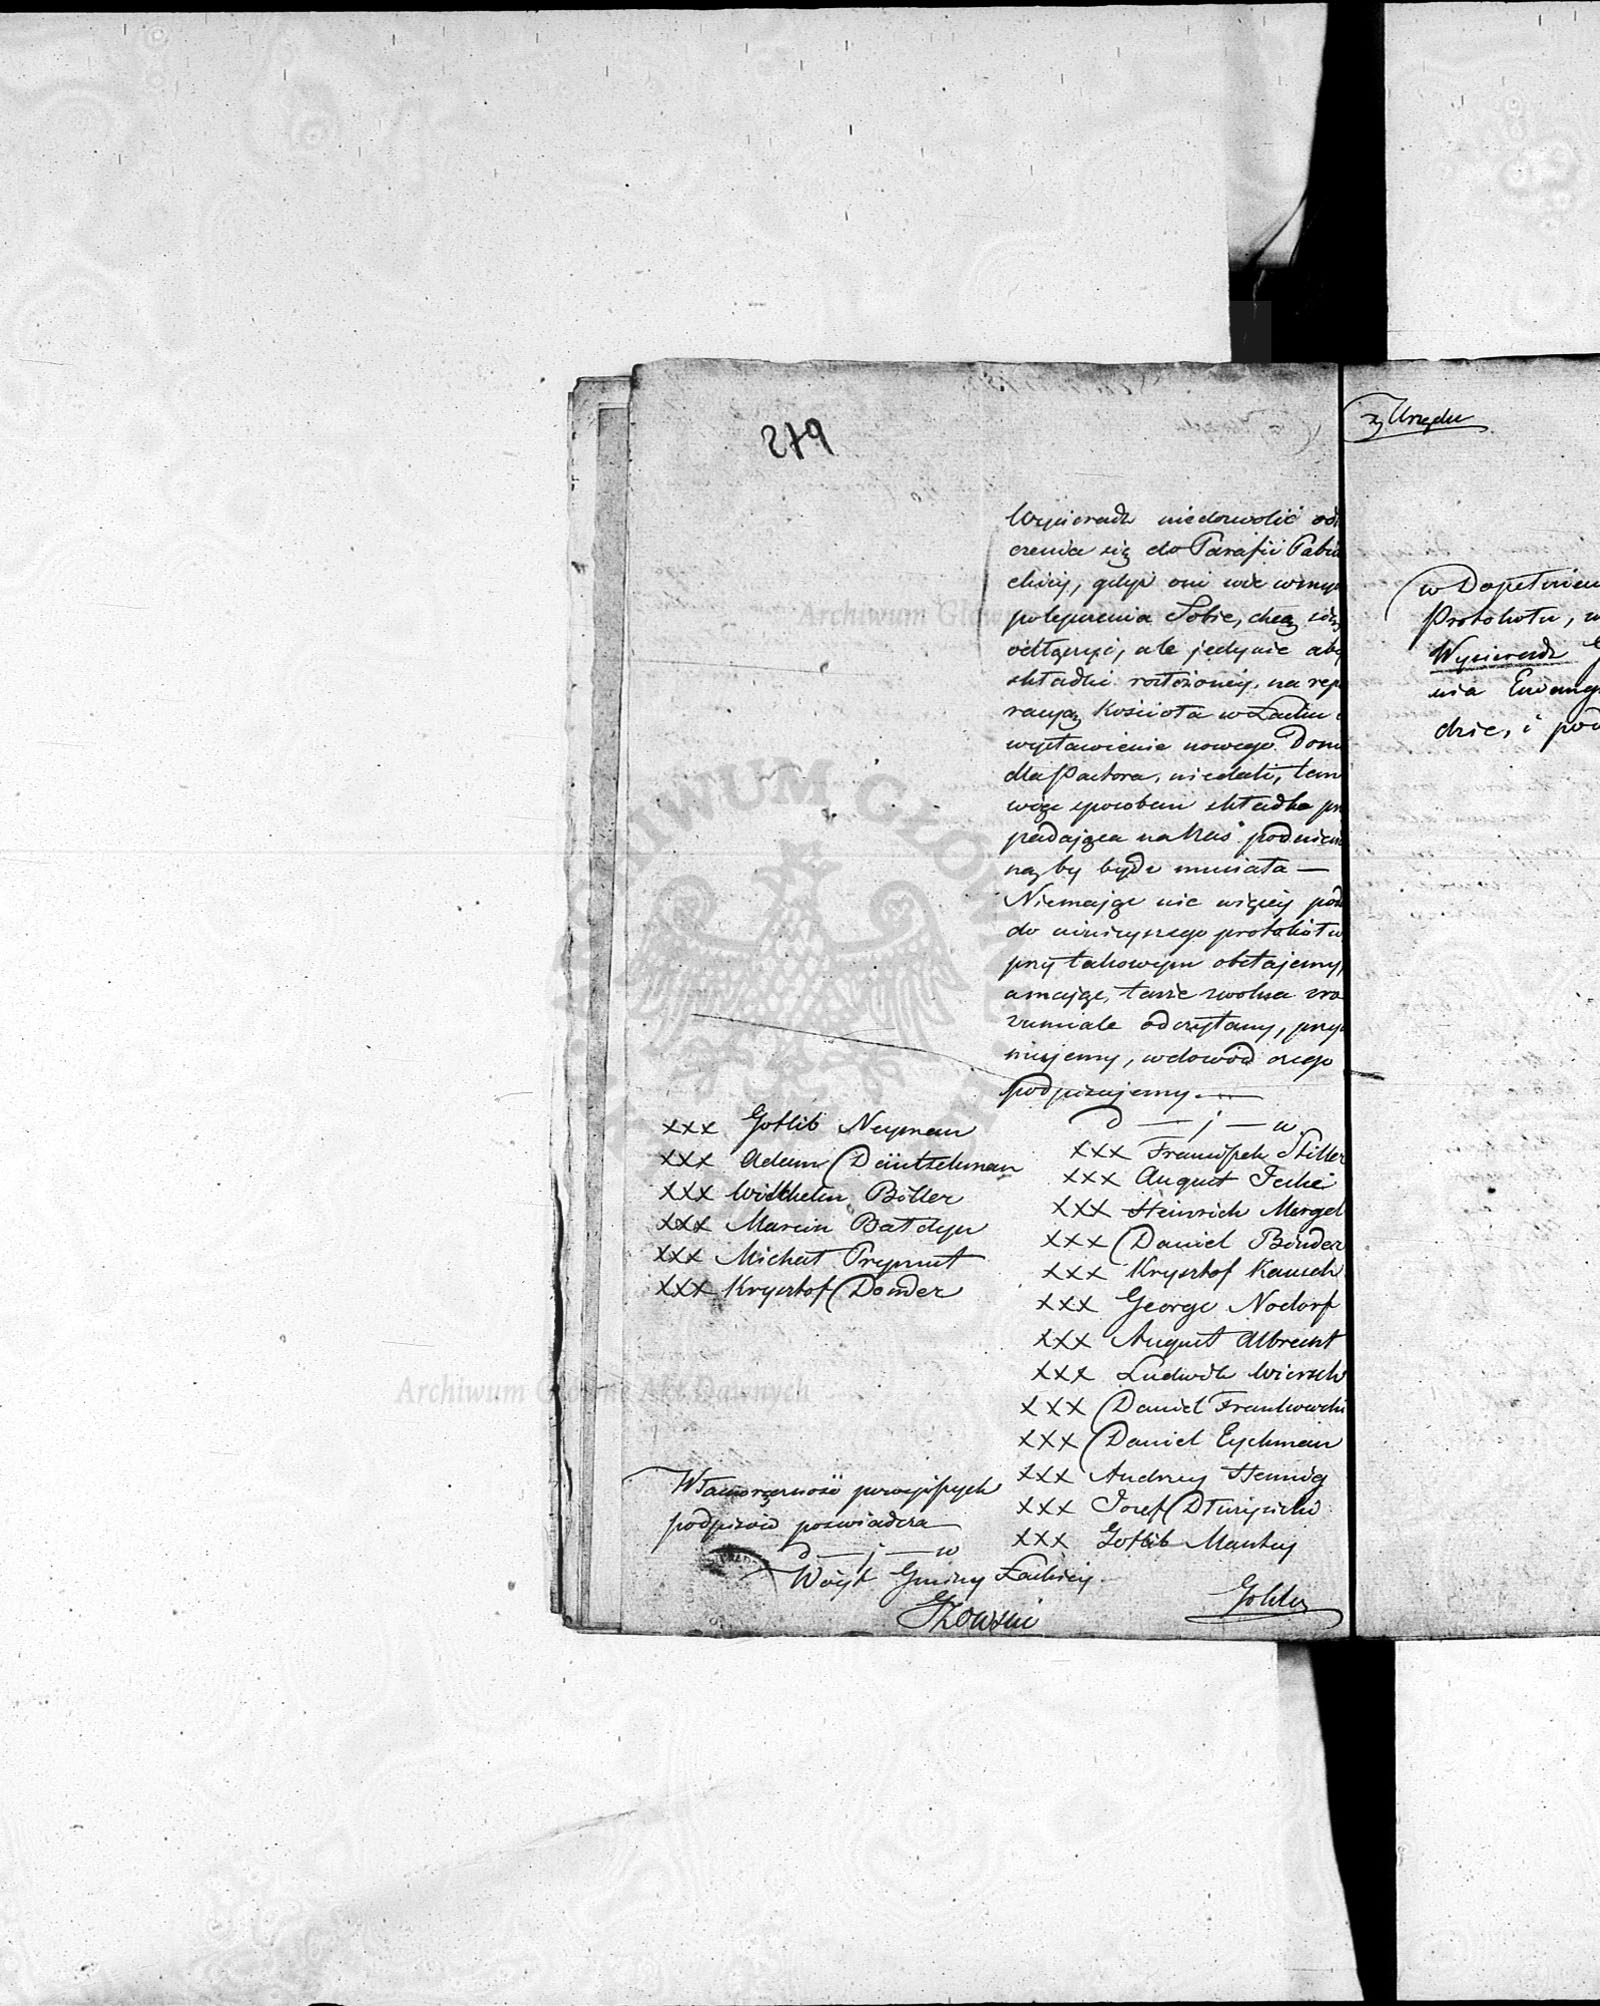 279
Wysieradz niedozwolić od
czenia się do Parafii Pabia
ckiey, gdyż oni nie w
polepszenia Sobie, chcą się
odłączyć, ale jedynie aby
składki rozłożoney, na repe
racyą Kościoła w Łasku
wystawienie nowego Domu
dla Pastora, niedali, tem
więc sposobem składka prz
padająca na Nas podnieść
ną by bydź musiała —
Niemając nic więcey
do ninieyszego protokółu
przy takowym obstajemy,
a mając, tenże zwolna zro
zumiale odczytany, przy
mujemy, w dowód czego
podpisujemy. —
D — j — w
xxx Gotlib Neyman
xxx Adam Däutschman
xxx Wilhelm Böller
xxx Marcin Bałdyn
xxx Michał Prymut
xxx Krysztof Donder
xxx Franciszek Stiller
xxx August Jeske
xxx Heinrich Mergel
xxx Daniel Bönder
xxx Krysztof Kausch
xxx George Nodorf
xxx August Albrecht
xxx Ludwik Wiersch
xxx Daniel Frankowski
xxx Daniel Eychman
xxx Andrzey Hennig
xxx Jozef Dłużyński
xxx Gotlib Mantey
Własnoręczność powyższych
podpisów poswiadcza
D — j — w
Wóyt Gminy Łaskiey
z Urzędu
w Dopełnieniu
Protokołu, w
Wysieradz G
nia Ewang
dzie, i pod
Archiwum Główne Akt Dawnych
ARCHIWUM GŁÓWNE